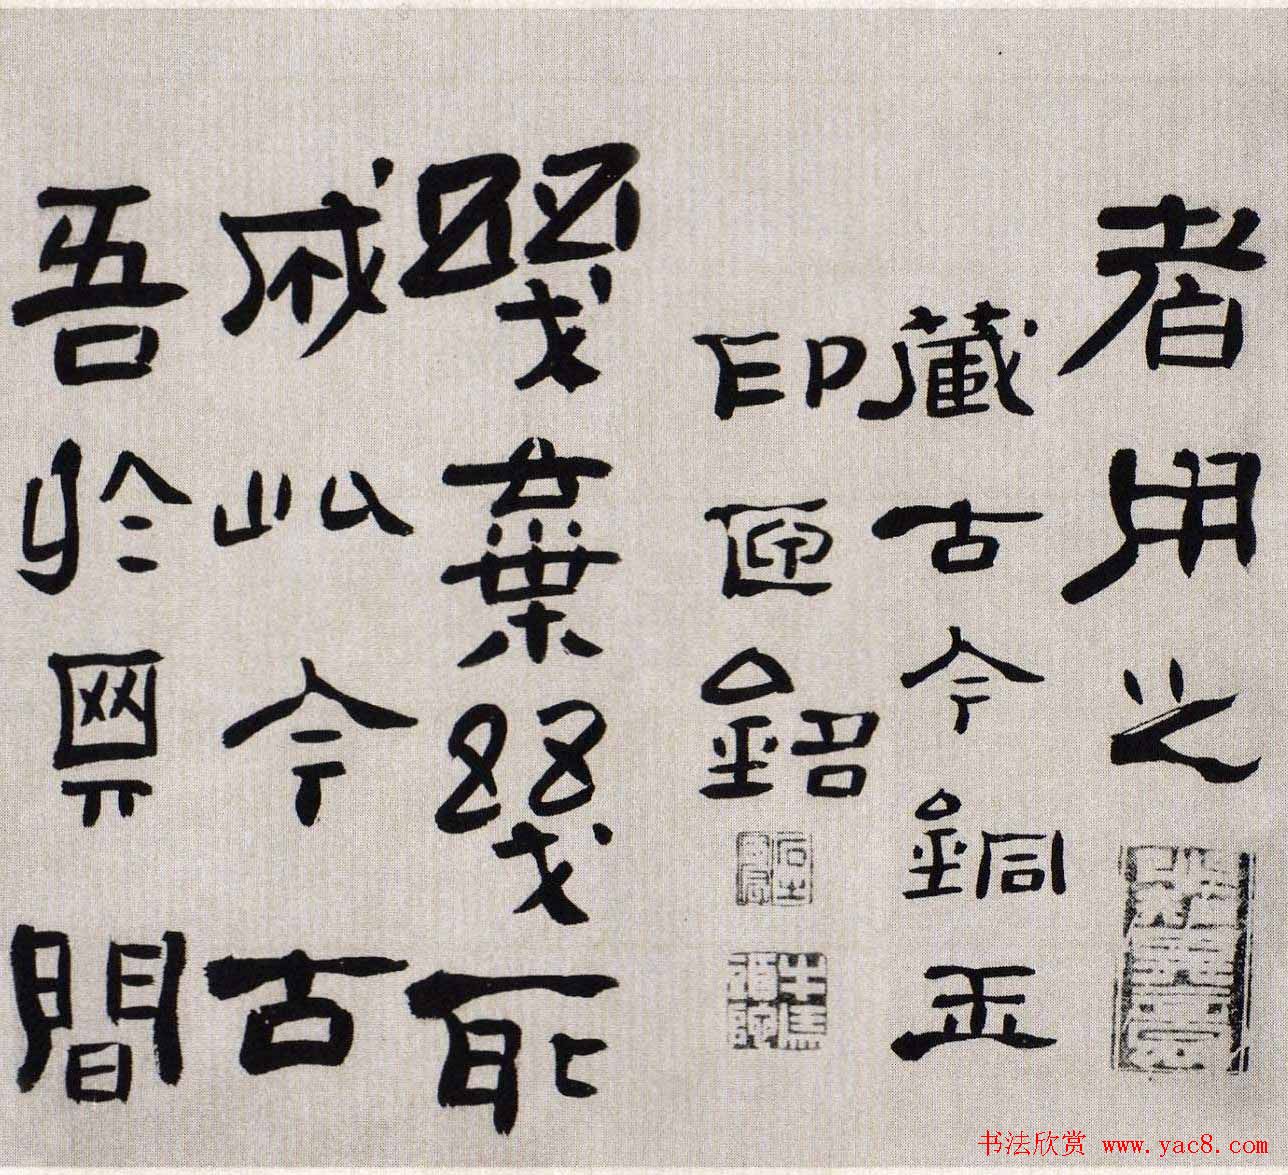 者用之
藏古今銅玉
印匣銘
幾棄幾取
今古
吾於其間
书法欣赏 www.yac8.com